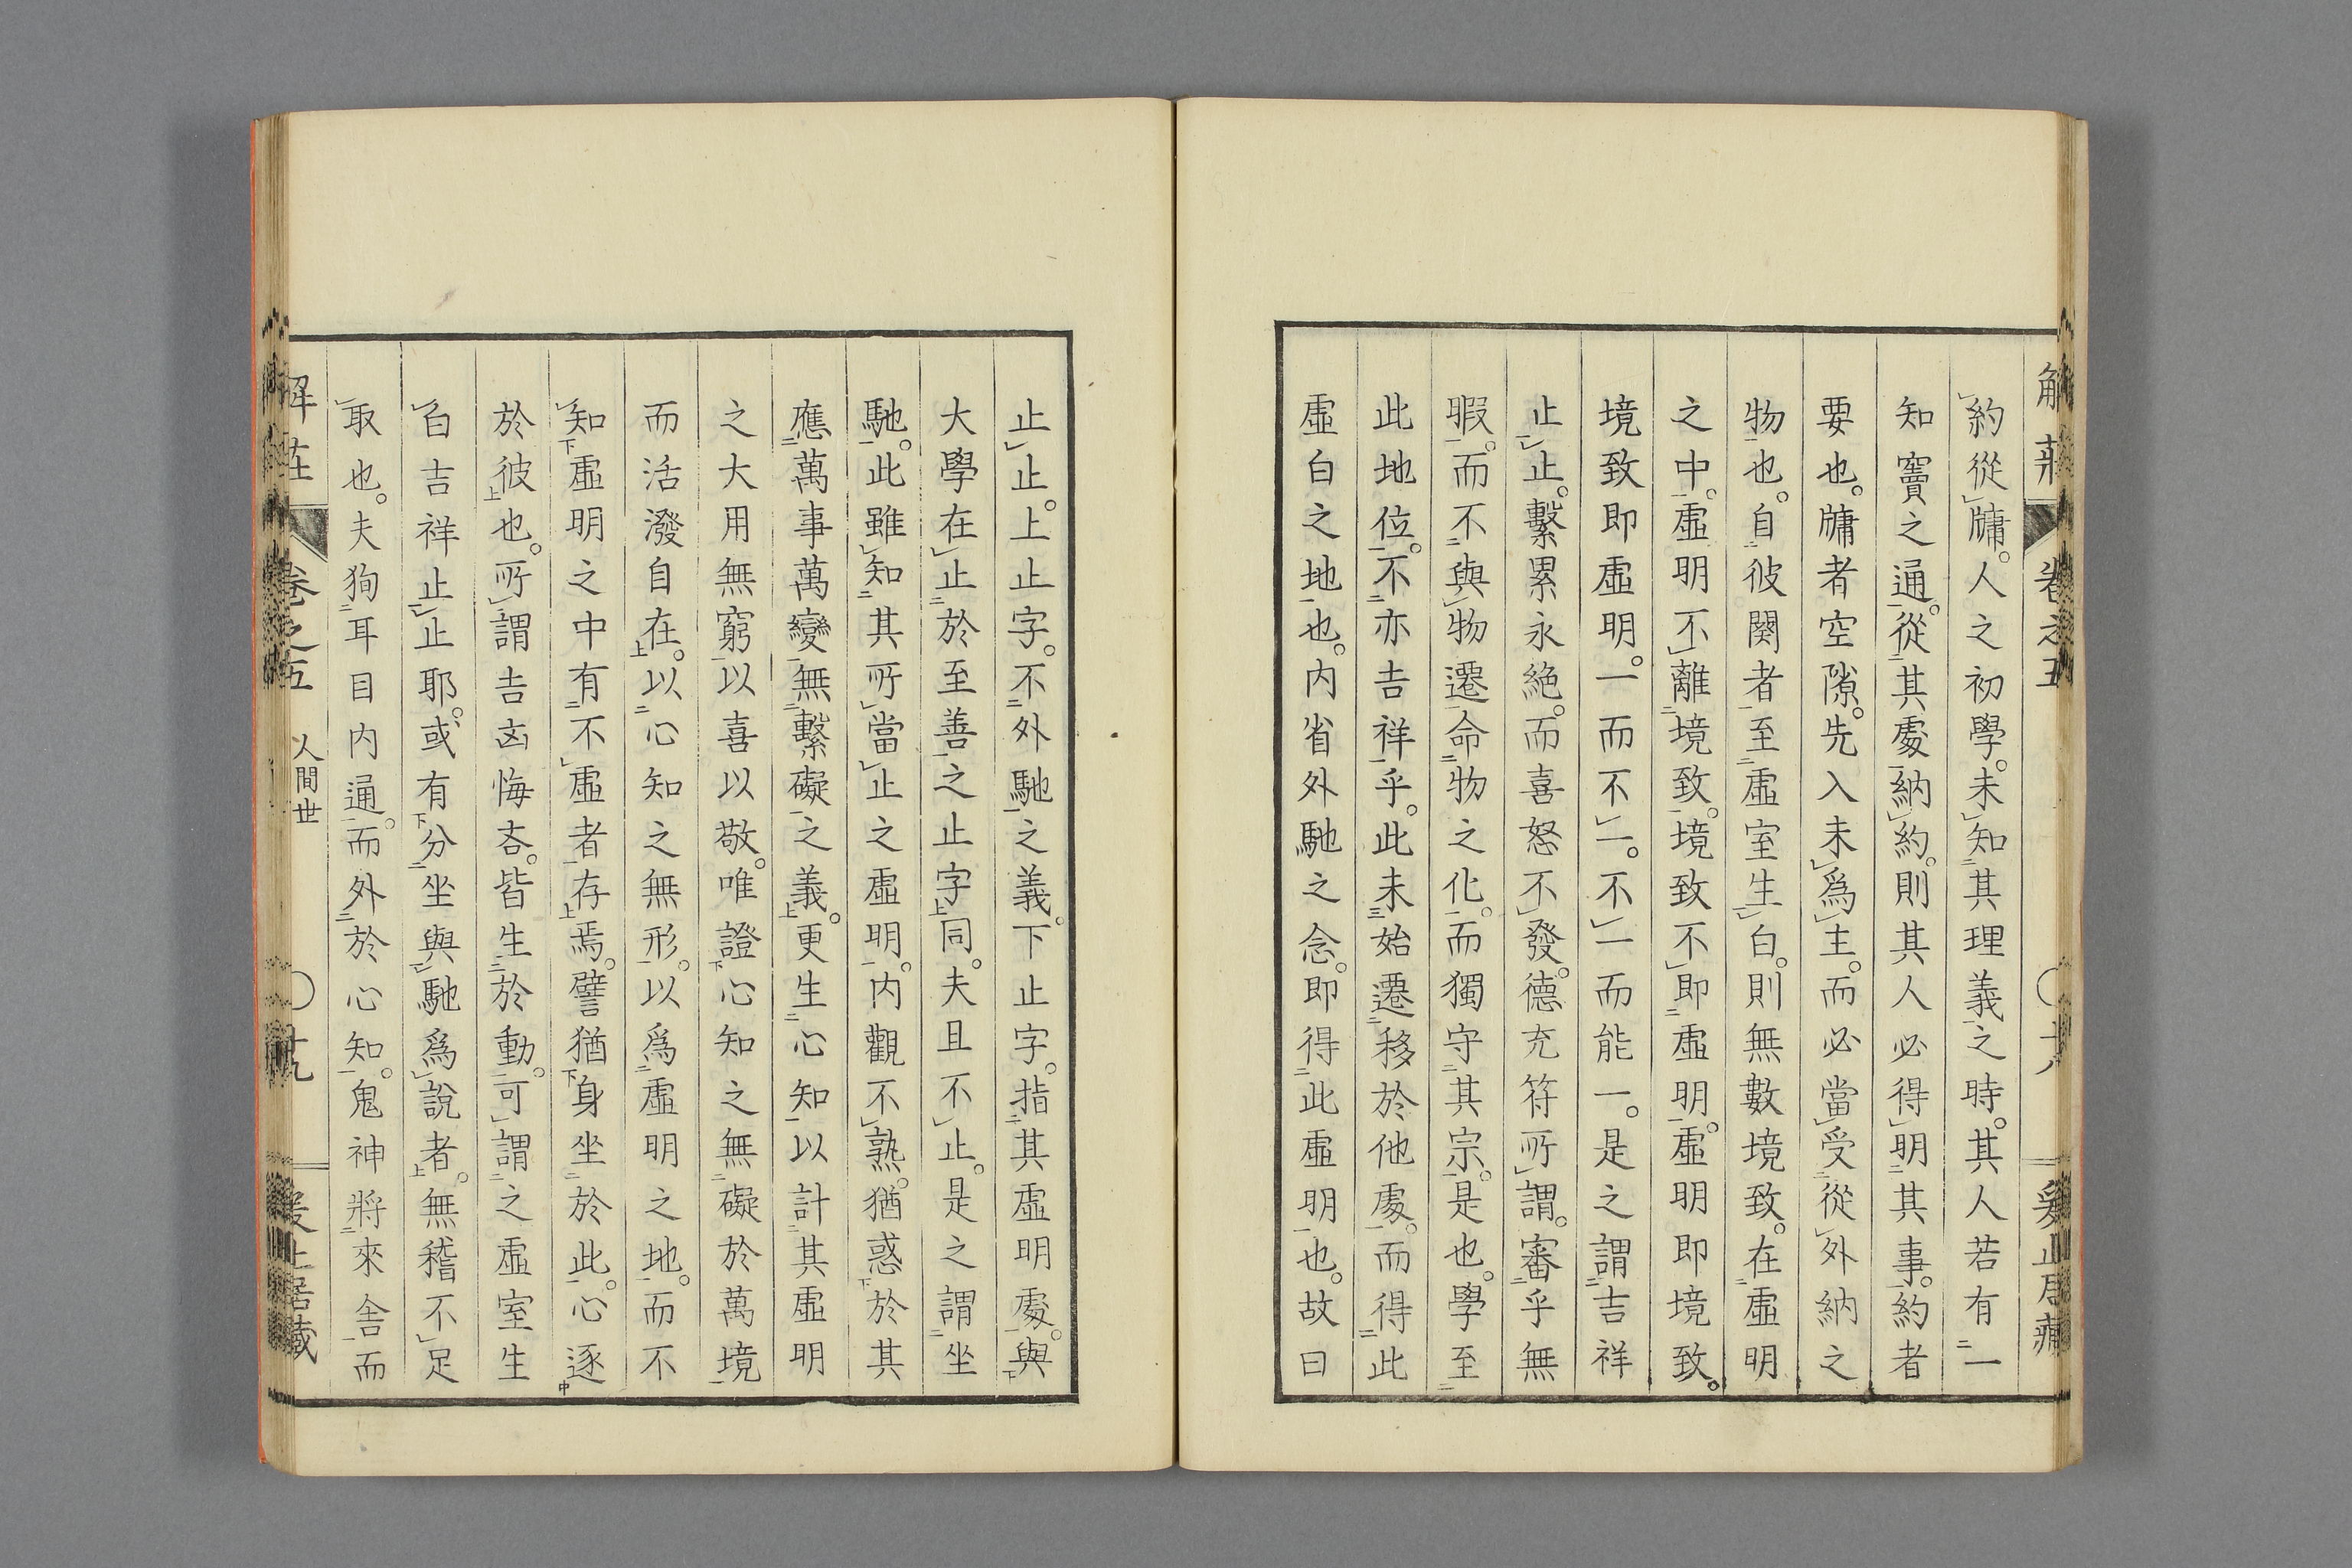 解莊 卷之五 〇 爰止居藏
約從牖。人之初學。未知其理義之時。其人若有一
知竇之通。從其處納約。則其人必得明其事。約者
要也。牖者空隙。先入未爲主。而必當受從外納之
物也。自彼闋者至虛室生白。則無數境致。在虛明
之中。虛明不離境致。境致不即虛明。虛明即境致。
境致即虛明。一而不一。不一而能一。是之謂吉祥
止止。繫累永絕。而喜怒不發。德充符所謂。審乎無
暇。而不與物遷。命物之化。而獨守其宗。是也。學至
此地位。不亦吉祥乎。此未始遷移於他處。而得此
虛白之地也。內省外馳之念。即得此虛明也。故曰
止止。上止字。不外馳之義。下止字。指其虛明處。與
大學在止於至善之止字同。夫且不止。是之謂坐
馳。此雖知其所當止之虛明。內觀不熟。猶惑於其
應萬事萬變無繫礙之義。更生心知以計其虛明
之大用無窮。以喜以敬。唯證心知之無礙於萬境
而活潑自在。以心知之無形。以爲虛明之地。而不
知虛明之中有不虛者存焉。譬猶身坐於此。心逐
於彼也。所謂吉凶悔吝。皆生於動。可謂之虛室生
白吉祥止止耶。或有分坐與馳爲說者。無稽不足
取也。夫狥耳目內通。而外於心知。鬼神將來舍而
解莊 卷之五 人間世 〇 十九 爰止居藏